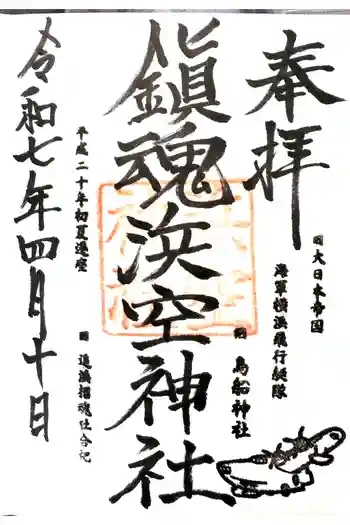 奉拝
旧大日本帝国
海軍横浜飛行艇隊
旧鳥船神社
鎮魂浜空神社
平成二十年初夏遷座
旧追浜招魂社合祀
令和七年四月十日